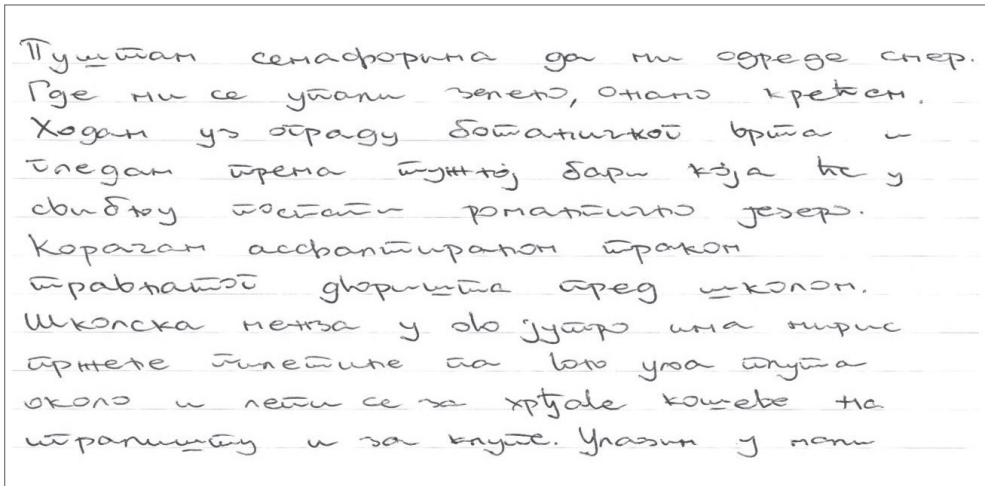 Пуштам семафорима да ми одреде смер.
Где ми се упали зелено, онамо крећем.
Ходам уз ограду ботаничког врта и
гледам према тужној бари која ће у
свибњу постати романтично језеро.
Корачам асфалтираном траком
травнатог дворишта пред школом.
Школска менза у ово јутро има мирис
пржене пилетине па воњ уља плута
около и лепи се за хрђаве кошеве на
игралишту и за клупе. Улазим у мали